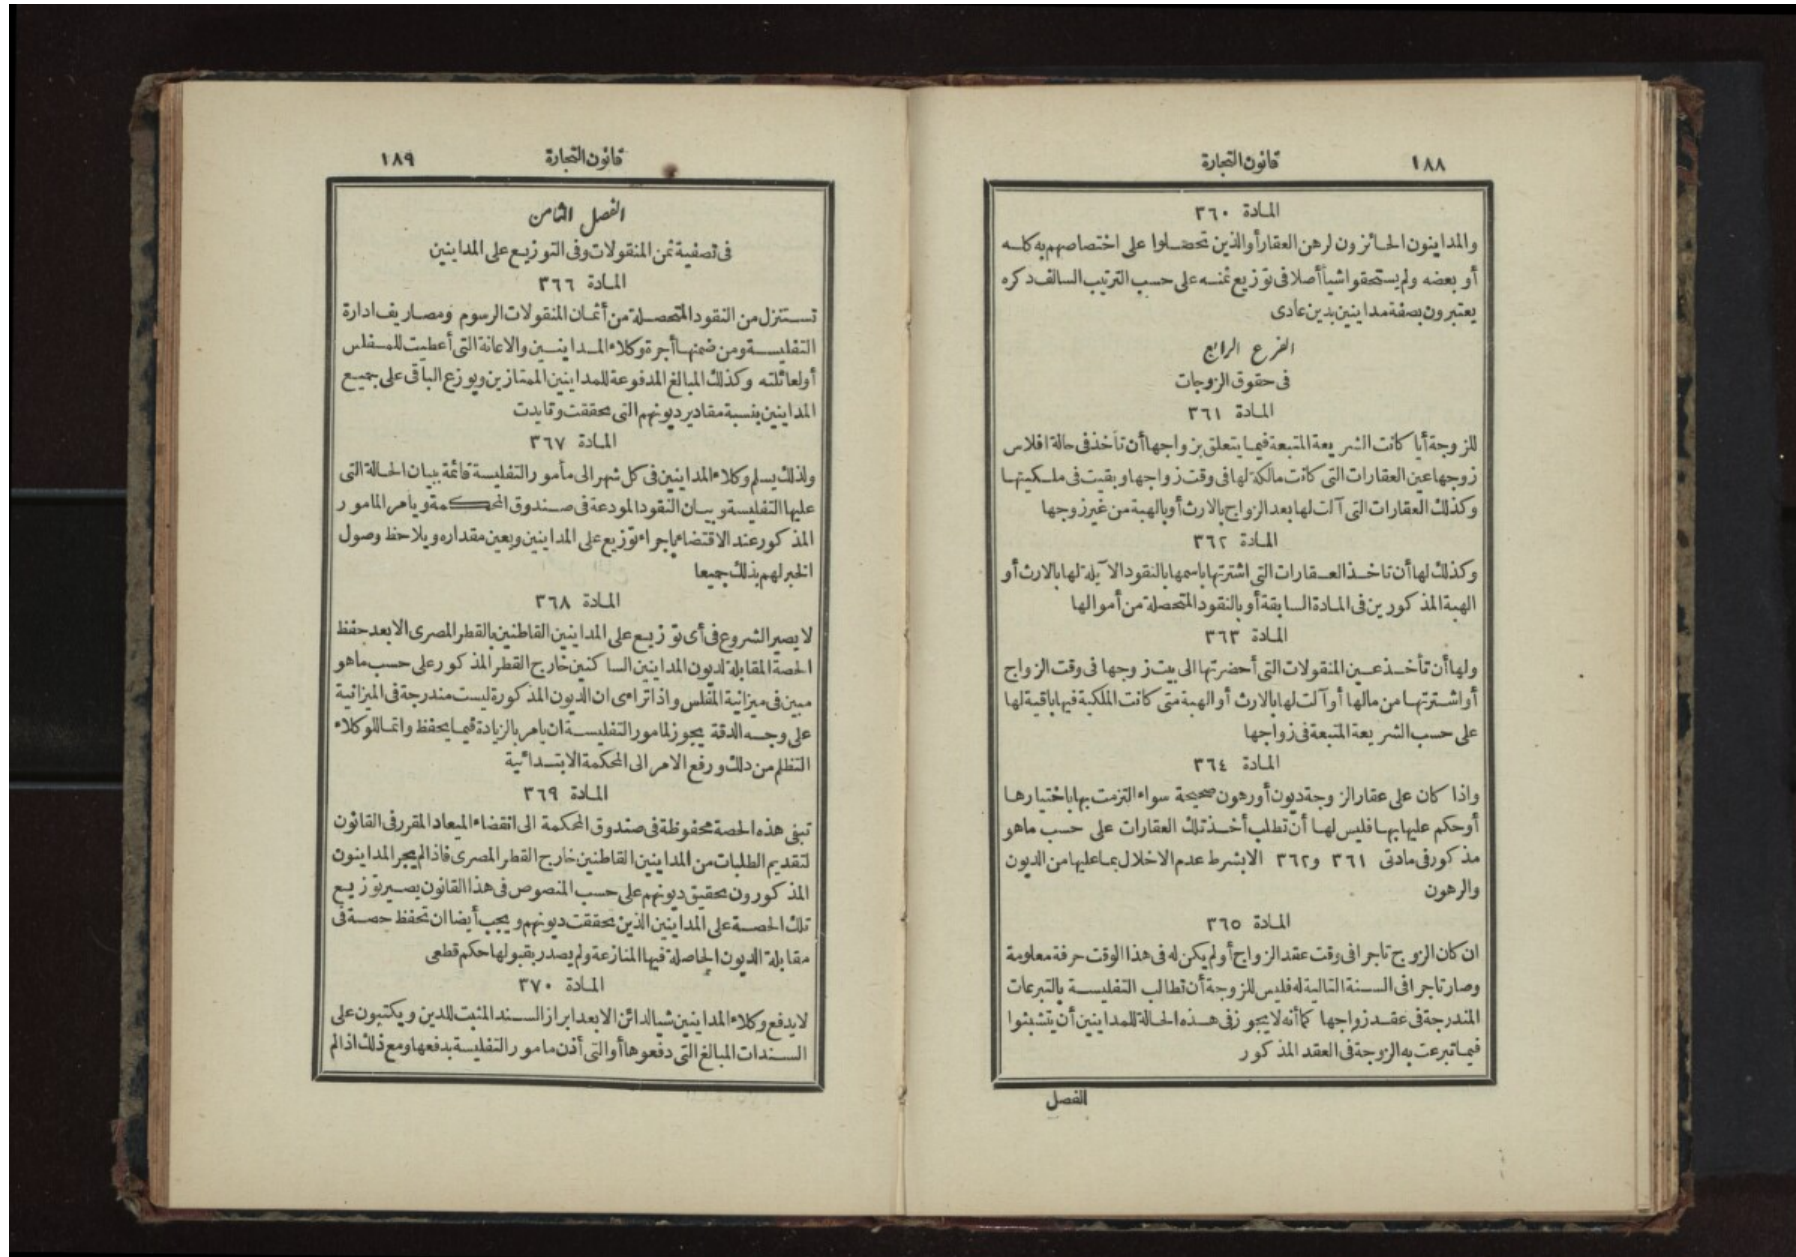 ١٨٨
قانون التجارة
المادة ٣٦٠
والمداينون الحائزون لرهن العقار أو الذين تحصلوا على اختصاصهم به كله
أو بعضه ولم يستحقوا شيأ أصلا فى توزيع ثمنه على حسب الترتيب السالف ذكره
يعتبرون بصفة مداينين بدين عادى
الفرع الرابع
فى حقوق الزوجات
المادة ٣٦١
للزوجة أيا كانت الشريعة المتبعة فيما يتعلق بزواجها أن تأخذ فى حالة افلاس
زوجها عين العقارات التى كانت مالكة لها فى وقت زواجها وبقيت فى ملكيتها
وكذلك العقارات التى آلت لها بعد الزواج بالارث أو بالهبة من غير زوجها
المادة ٣٦٢
وكذلك لها أن تاخذ العقارات التى اشترتها باسمها بالنقود الآيلة لها بالارث أو
الهبة المذكورين فى المادة السابقة أو بالنقود المتحصلة من أموالها
المادة ٣٦٣
ولها أن تأخذ عين المنقولات التى أحضرتها الى بيت زوجها فى وقت الزواج
أو اشترتها من مالها أو آلت لها بالارث أو الهبة متى كانت الملكية فيها باقية لها
على حسب الشريعة المتبعة فى زواجها
المادة ٣٦٤
واذا كان على عقار الزوجة ديون أو رهون صحيحة سواء التزمت بها باختيارها
أو حكم عليها بها فليس لها أن تطلب أخذ تلك العقارات على حسب ما هو
مذكور فى مادتى ٣٦١ و٣٦٢ الا بشرط عدم الاخلال بما عليها من الديون
والرهون
المادة ٣٦٥
ان كان الزوج تاجرا فى وقت عقد الزواج أو لم يكن له فى هذا الوقت حرفة معلومة
وصار تاجرا فى السنة التالية له فليس للزوجة أن تطالب التفليسة بالتبرعات
المندرجة فى عقد زواجها كما أنه لا يجوز فى هذه الحالة للمداينين أن يتشبثوا
فيما تبرعت به الزوجة فى العقد المذكور
الفصل
قانون التجارة
١٨٩
الفصل الثامن
فى تصفية ثمن المنقولات وفى التوزيع على المداينين
المادة ٣٦٦
تستنزل من النقود المتحصلة من أثمان المنقولات الرسوم ومصاريف ادارة
التفليسة ومن ضمنها أجرة وكلاء المداينين والاعانة التى أعطيت للمفلس
أو لعائلته وكذلك المبالغ المدفوعة للمداينين الممتازين ويوزع الباقى على جميع
المداينين بنسبة مقادير ديونهم التى تحققت وتايدت
المادة ٣٦٧
ولذلك يسلم وكلاء المداينين فى كل شهر الى مأمور التفليسة قائمة ببيان الحالة التى
عليها التفليسة وبيان النقود المودعة فى صندوق المحكمة ويأمر المامور
المذكور عند الاقتضاء باجراء توزيع على المداينين ويعين مقداره ويلاحظ وصول
الخبر لهم بذلك جميعا
المادة ٣٦٨
لا يصير الشروع فى أى توزيع على المداينين القاطنين بالقطر المصرى الا بعد حفظ
الحصة المقابلة لديون المداينين الساكنين خارج القطر المذكور على حسب ما هو
مبين فى ميزانية المفلس واذا تراءى ان الديون المذكورة ليست مندرجة فى الميزانية
على وجه الدقة يجوز لمامور التفليسة ان يامر بالزيادة فيما يحفظ وانما للوكلاء
التظلم من ذلك ورفع الامر الى المحكمة الابتدائية
المادة ٣٦٩
تبقى هذه الحصة محفوظة فى صندوق المحكمة الى انقضاء الميعاد المقرر فى القانون
لتقديم الطلبات من المداينين القاطنين خارج القطر المصرى فاذا لم يجر المداينون
المذكورون تحقيق ديونهم على حسب المنصوص فى هذا القانون يصير توزيع
تلك الحصة على المداينين الذين تحققت ديونهم ويجب أيضا ان تحفظ حصة فى
مقابلة الديون الحاصلة فيها المنازعة ولم يصدر بقبولها حكم قطعى
المادة ٣٧٠
لا يدفع وكلاء المداينين شيا لدائن الا بعد ابراز السند المثبت للدين ويكتبون على
السندات المبالغ التى دفعوها أو التى أذن مامور التفليسة بدفعها ومع ذلك اذا لم